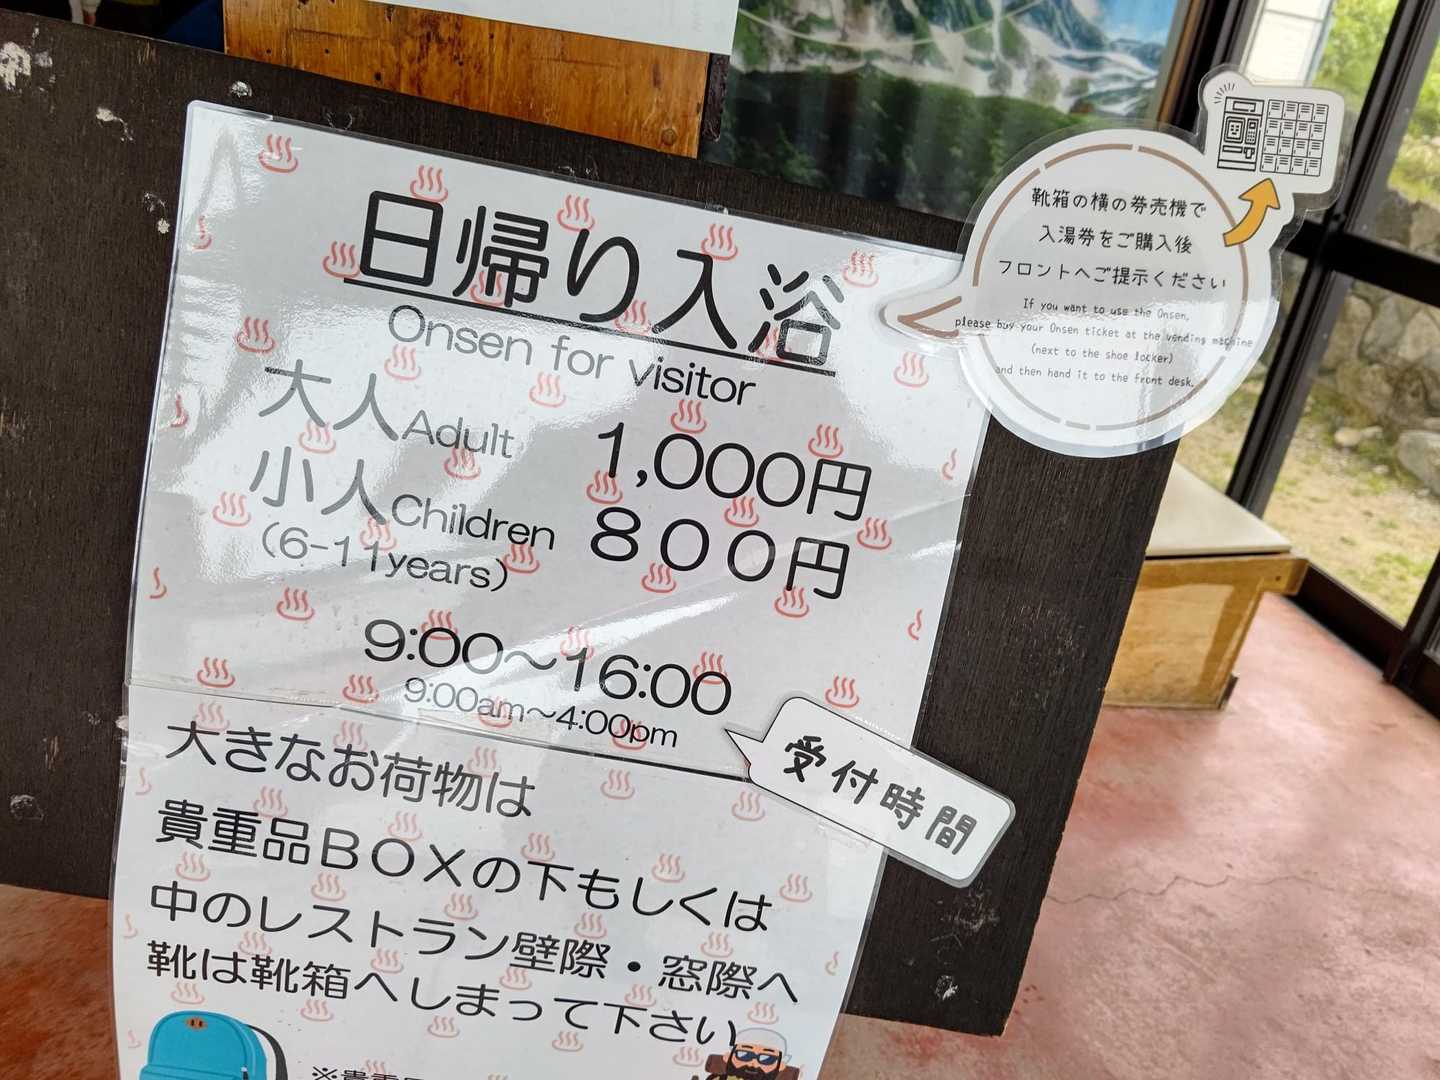 日帰り入浴
Onsen for visitor
大人Adult 1,000円
小人Children 800円
(6-11years)
9:00～16:00
9:00am～4:00pm
受付時間
靴箱の横の券売機で
入湯券をご購入後
フロントへご提示ください
If you want to use the Onsen,
please buy your Onsen ticket at the vending machine
(next to the shoe locker)
and then hand it to the front desk.
大きなお荷物は
貴重品BOXの下もしくは
中のレストラン壁際・窓際へ
靴は靴箱へしまって下さい